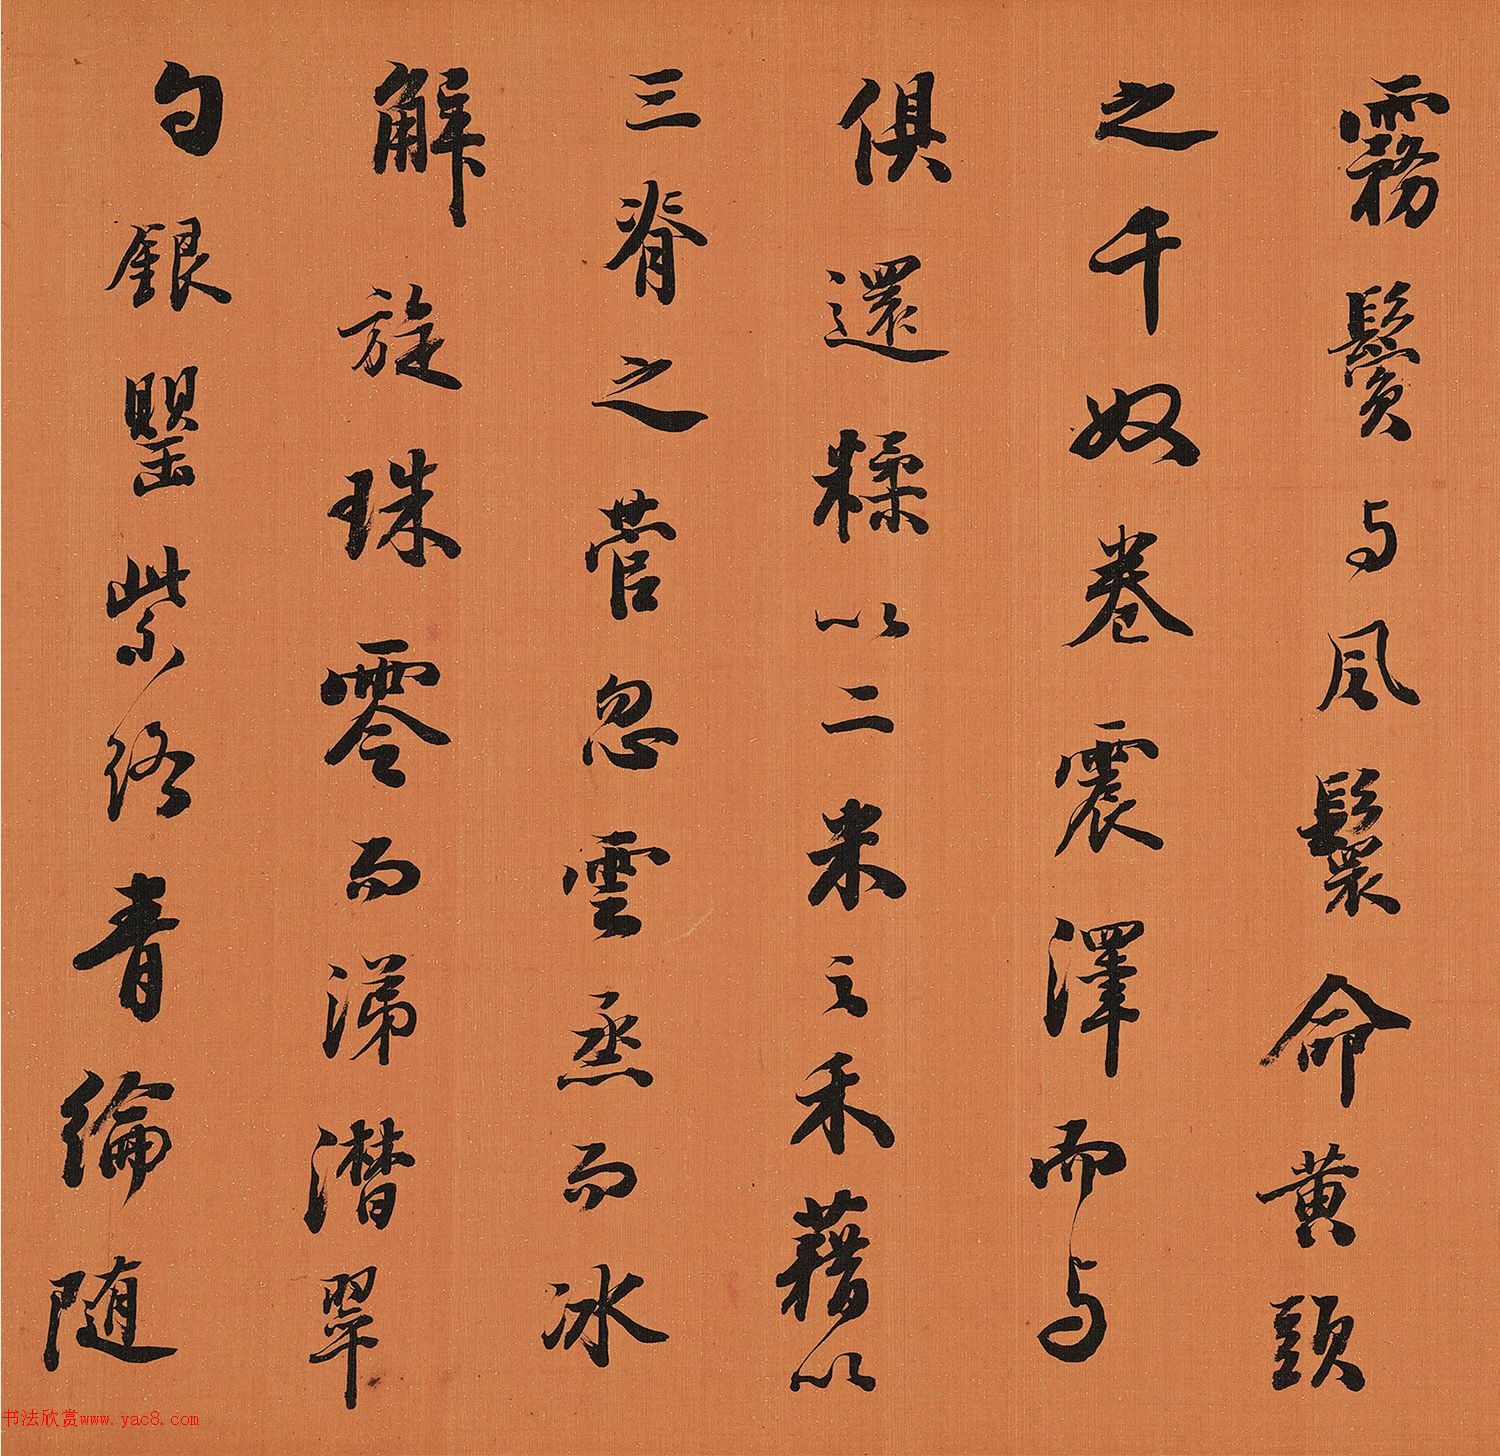 霧鬢与風鬟命黄頭
之千奴卷震澤而与
俱還糅以二米之禾藉以
三脊之菅忽雲烝而冰
解旋珠零而涕潸翠
勺銀罌紫絡青綸随
书法欣赏www.yac8.com